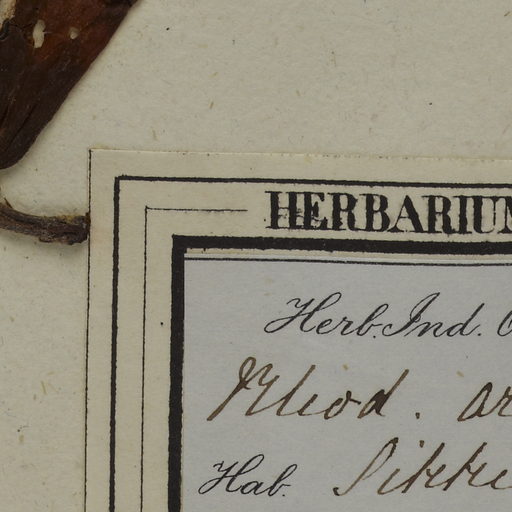 HERBARIUM
Herb. Ind.
Rhod. ar
Hab. Sikki